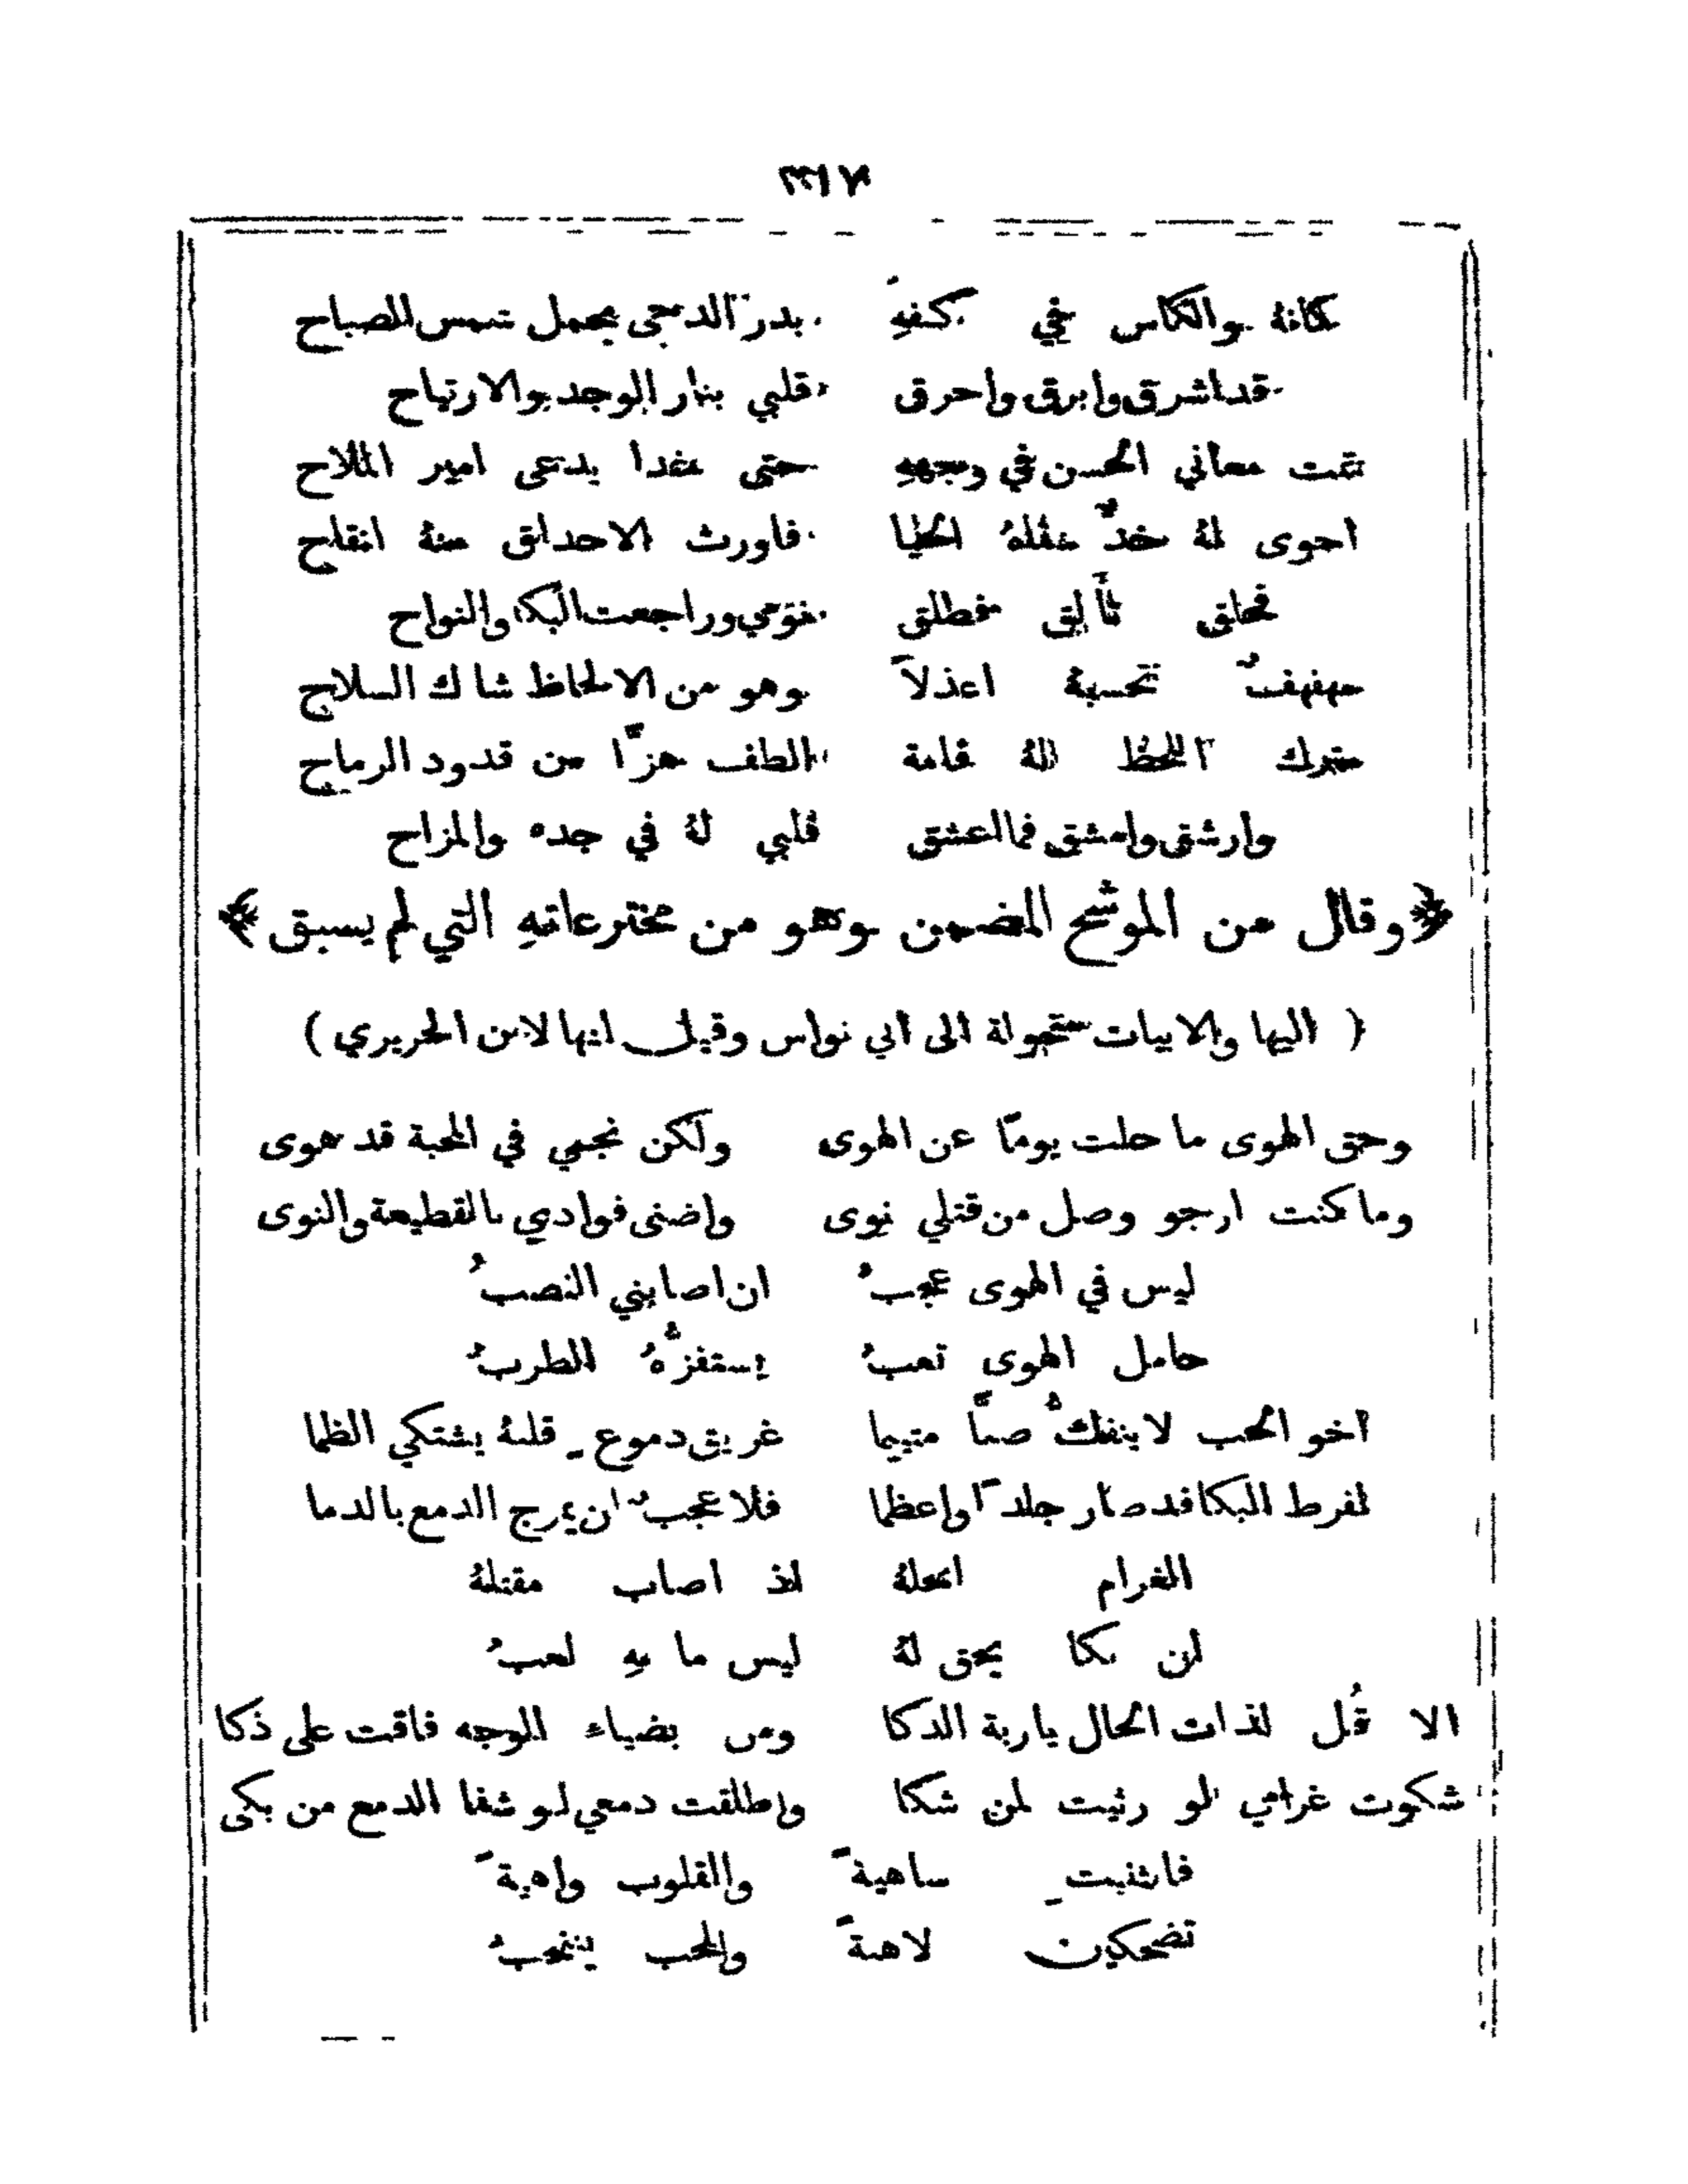 ٣١٧
كانهُ والكاس في كفهِ بدر الدجى يحمل شمس الصباح
قد اشرق وابرق واحرق قلبي بنار الوجد والارتياح
تمت معاني الحسن في وجههِ حتى غدا يدعى امير الملاح
احوى لهُ خدٌّ الحيا فاورث الاحداق منهُ انقداح
تألق نومي وراجعت البكا والنواح
مهفهفٌ تحسبهُ اعذلاً وهو من الالحاظ شاك السلاح
اللحظ لهُ قامة الطف هزًّا من قدود الرماح
وارشق وامشق فما العشق قلبي لهُ في جده والمزاح
﴿ وقال من الموشح المضمن وهو من مخترعاتهِ التي لم يسبق ﴾
( اليها والابيات منحولة الى ابي نواس وقيل انها لابن الحريري )
وحق الهوى ما حلت يومًا عن الهوى ولكن نجمي في المحبة قد هوى
وما كنت ارجو وصل من قتلي نوى واضنى فوادي بالقطيعة والنوى
ليس في الهوى عجبُ ان اصابني النصبُ
حامل الهوى تعبُ يستفزُّهُ الطربُ
اخو الحب لا ينفكُّ صبًّا متيما غريق دموع قلبهُ يشتكي الظما
لفرط البكا قد صار جلدًا واعظما فلا عجبٌ ان يمزج الدمع بالدما
الغرام انحلهُ اذ اصاب مقتلهُ
ان بكا يحق لهُ ليس ما بهِ لعبُ
الا قُل لذات الخال يا ربة الذكا ومن بضياء الوجه فاقت على ذكا
شكوت غرامي لو رثيت لمن شكا واطلقت دمعي لو شفا الدمع من بكى
فانثنيت ساهيةً والقلوب واهيةً
تضحكين لاهيةً والمحب ينتحبُ